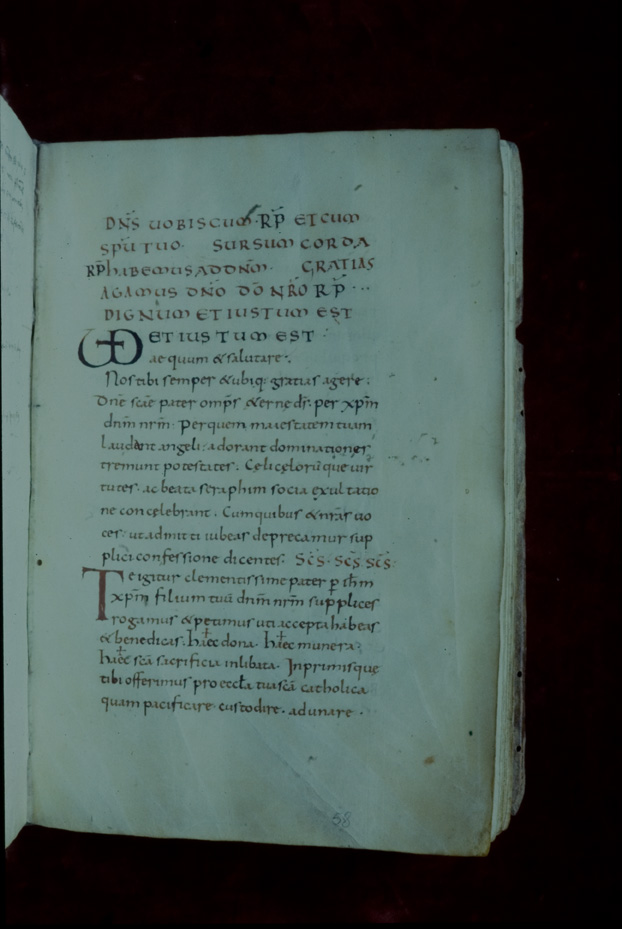 DN̄S UOBISCUM· RP̄ ETCUM
SPŪ TUO· SURSUM CORDA
RP̄ hABEMUS AD DN̄M· GRATIAS
AGAMUS DN̄O DŌ NR̄O RP̄ ···
DIGNUM ET IUSTUM EST
UD ET IUS TUM EST ·
aequum & salutare·.
Nos tibi semper & ubiq; gratias agere·
Dn̄e sc̄ae pater omp̄s &erne ds̄· per xp̄m
dn̄m nr̄m· Per quem maiestatem tuam
laudant angeli· adorant dominationes
tremunt potestates· Cęli cęlorū que uir
tutes· ac beata seraphim socia exultatio
ne concęlebrant· Cum quibus & nr̄as uo
ces· ut admitti iubeas deprecamur sup
plici confessione dicentes· Sc̄s· Sc̄s Sc̄s·
Te igitur clementissime pater p ih̄m
xp̄m filium tuū dn̄m nr̄m supplices
rogamus & petimus uti accepta habeas
& benedicas· hæc ✝ dona· hæc ✝ munera·
hæc ✝ sc̄a sacrificia inlibata· Inprimisque
tibi offerimus pro eccła tua sc̄a catholica
quam pacificare· custodire· adunare·
58